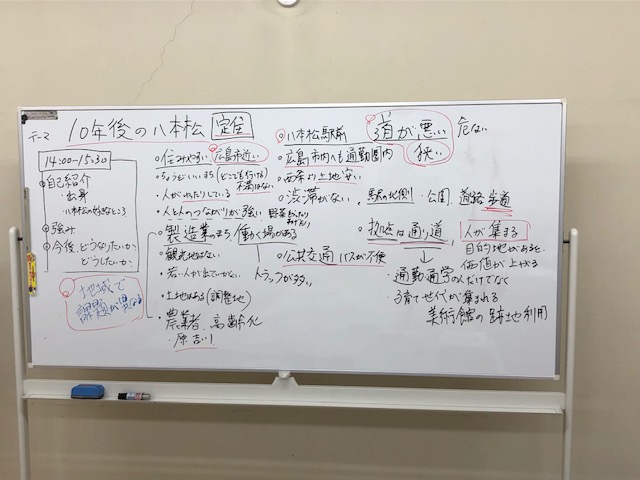 テーマ 10年後の八本松 定住
14:00-15:30
自己紹介
・出身
・八本松の好きなところ
強み
今後、どうなりたいか、
どうしたいか
地域で
課題が異なる
住みやすい 広島市近い
ちょうどいいまち(どこでも行ける)
不満はない
人がれたりしている
人と人のつながりが強い 野菜
製造業のまち、働く場がある
観光地はない
若い人が出ていかない
土地はある(調整地)
農業者 高齢化
・原 吉川
八本松駅前
広島市内へも通勤圏内
西条より土地安い
渋滞がない
公共交通 バスが不便
トラックが多い
道が、悪い 危ない
狭い
駅の北側 ・公園 道路 歩道
拠点は通り道
人が集まる
目的地があると、
価値が上がる
・通勤通学の人だけでなく
子育て世代が集まれる
美術館の跡地利用